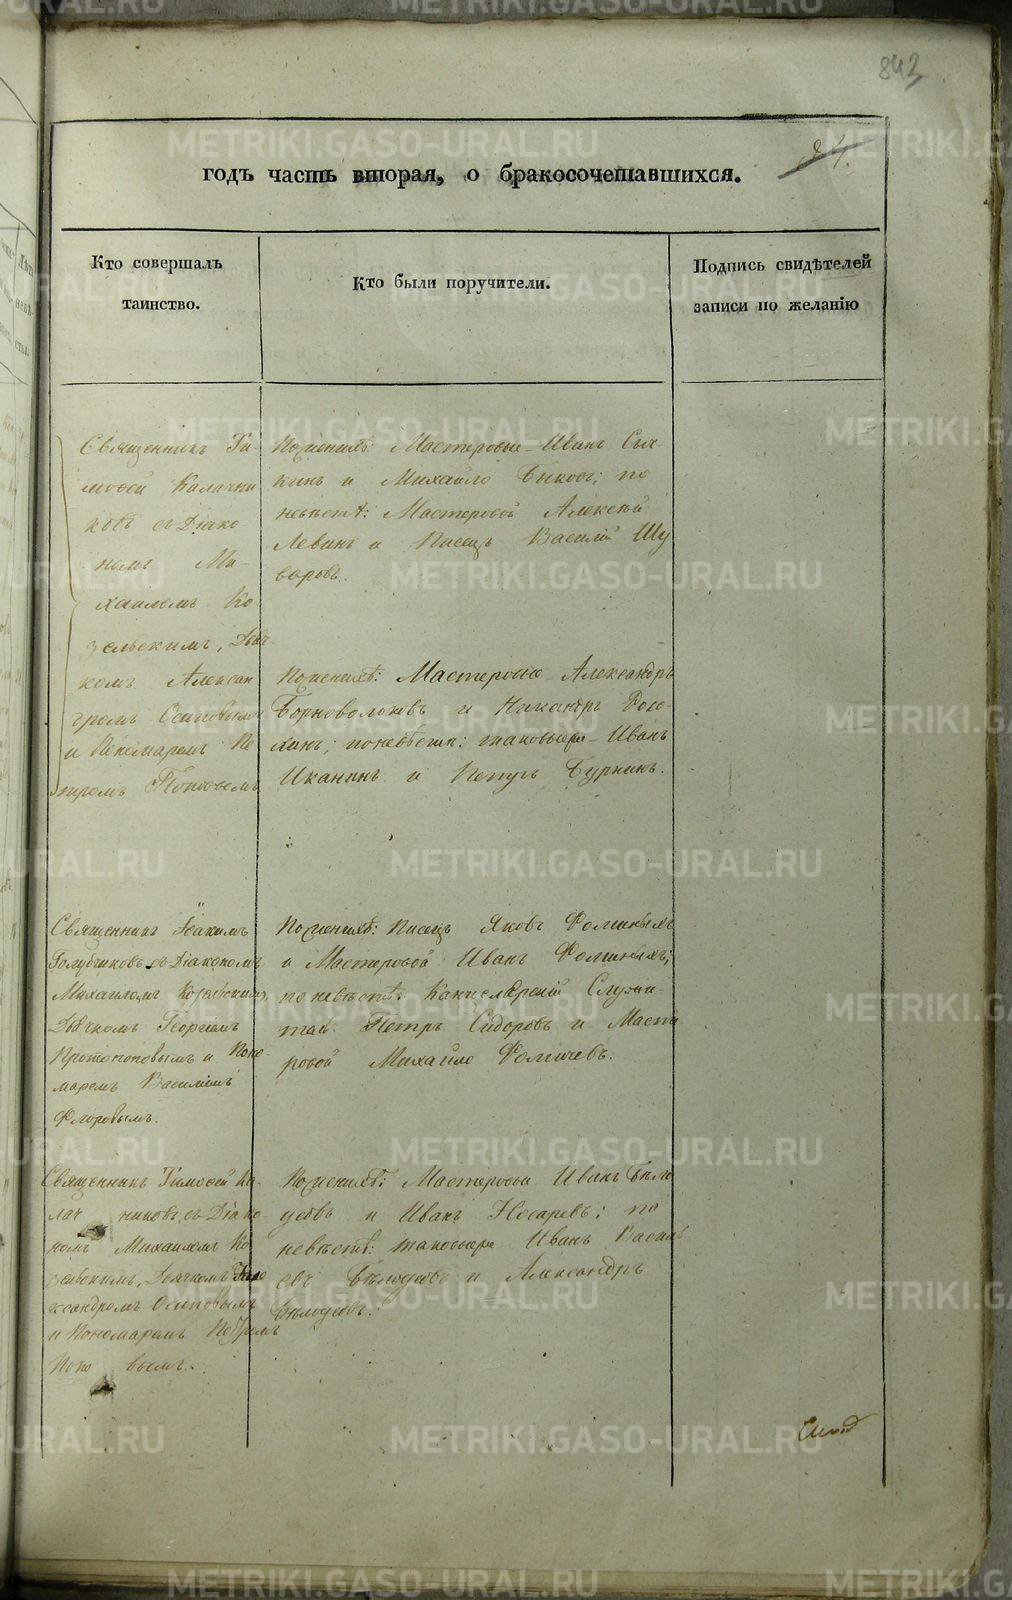 843
24.
годъ часть вторая, о бракосочетавшихся.
Кто совершалъ
таинство.
Кто были поручители.
Подпись свидѣтелей
записи по желанію
Священникъ Ти-
мофей Калачни
ковъ съ Діако
номъ Ми-
хаиломъ Ко
зельскимъ, Дьяч-
комъ Алексан
дромъ Осиповымъ
и Пономаремъ Пе
тромъ Поповымъ
По женихѣ: Мастеровые Иванъ
и Михайло Быковъ; по
невѣстѣ: Мастеровой Алексѣй
Левинъ и Писецъ Василій Шу
варовъ.
По женихѣ: Мастеровые Александръ
Борноволоковъ и Никандръ
по невѣсте: таковыеже Иванъ
Иканинъ и Петръ Бурнинъ.
Священникъ Іоакимъ
Голубчиковъ съ Діакономъ
Михаиломъ
Дьячкомъ Георгіемъ
Протопоповымъ и Поно-
маремъ Василіемъ
Флоровымъ.
По женихѣ: Писецъ Яковъ Фоминыхъ
и Мастеровой Иванъ Фоминыхъ;
по невѣстѣ: Канцелярскій Служи-
тель Петръ Сидоровъ и Масте
ровой Михайло Фомичевъ.
Священникъ Тимофей Ка-
лач никовъ, съ Діако-
номъ Михаиломъ Ко
Дьячкомъ Але
ксандромъ Осиповымъ
и Пономаремъ Петромъ
Попо вымъ.
По женихѣ: Мастеровые Иванъ Бѣло
усовъ и Иванъ Носаревъ; по
невѣстѣ: таковыеже Иванъ Василь
евъ Бѣлоусовъ и Александръ
Бѣлоусовъ.
METRIKI.GASO-URAL.RU